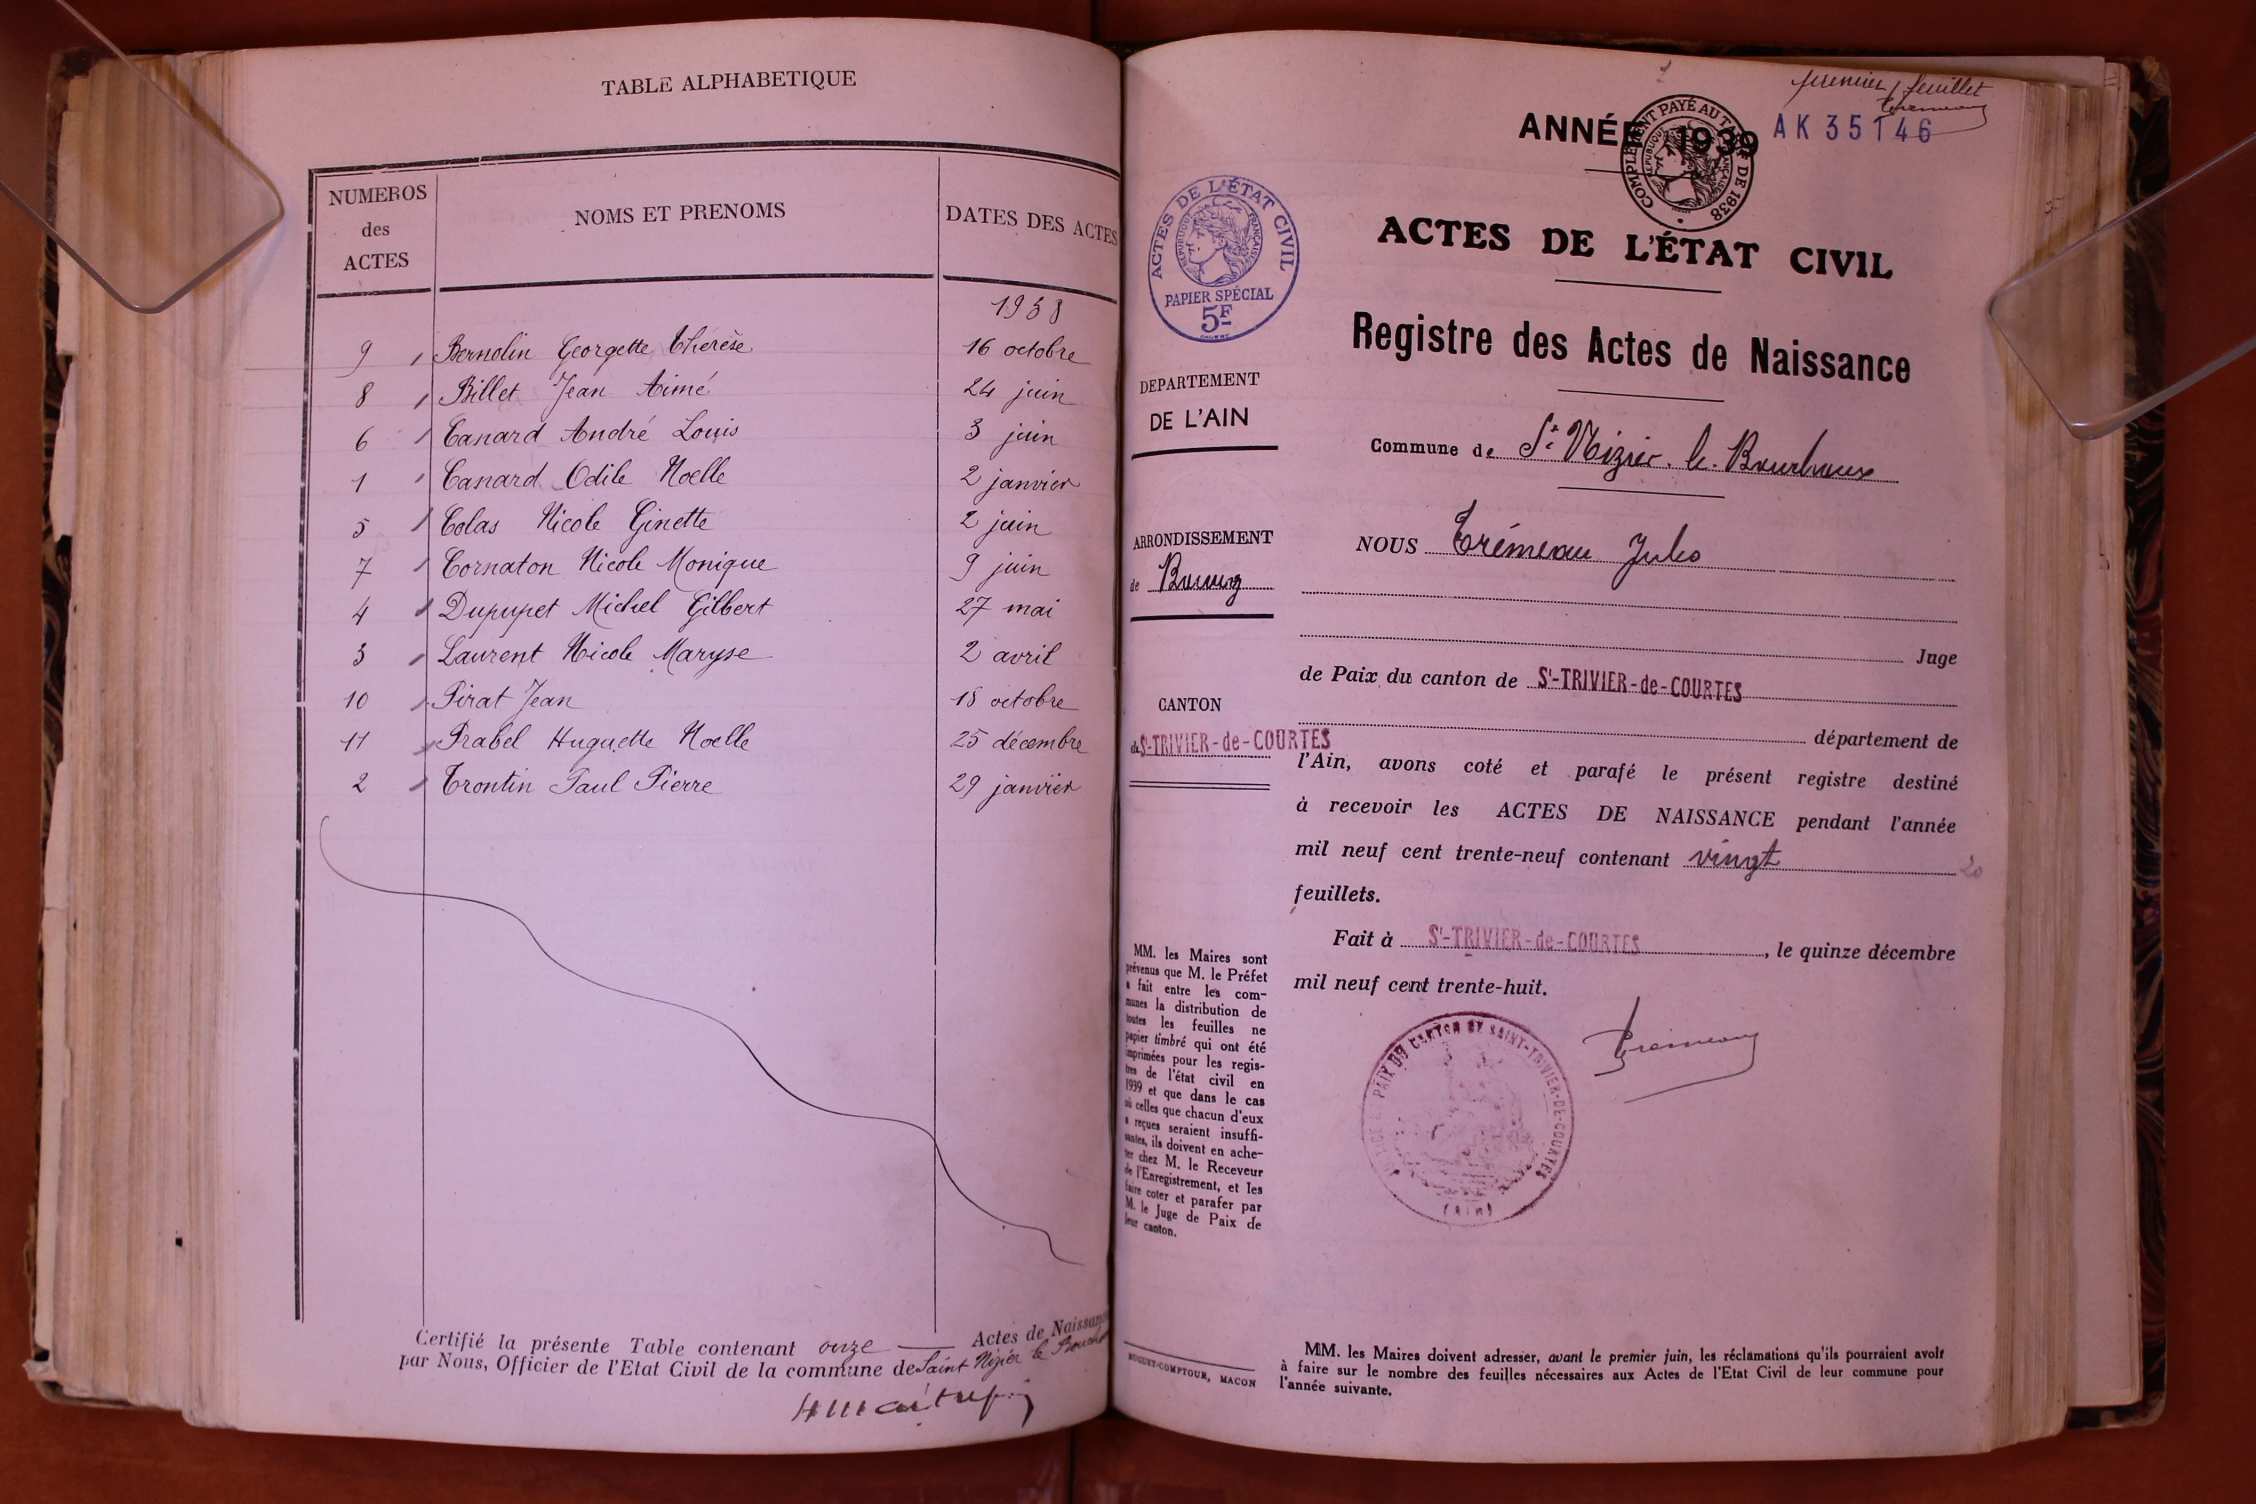 TABLE ALPHABETIQUE
NUMEROS
des
ACTES
NOMS ET PRENOMS
DATES DES ACTES
1938
9 Bernolin Georgette Thérèse 16 octobre
8 Billet Jean Aimé 24 juin
6 Canard André Louis 3 juin
1 Canard Odile Noelle 2 janvier
5 Colas Nicole Ginette 2 juin
7 Cornaton Nicole Monique 9 juin
4 Dupupet Michel Gilbert 27 mai
3 Laurent Nicole Maryse 2 avril
10 Pirat Jean 18 octobre
11 Prabel Huguette Noelle 25 décembre
2 Trontin Paul Pierre 29 janvier
Certifié la présente Table contenant onze Actes de Naissance
par Nous, Officier de l'Etat Civil de la commune de Saint Nizier le Bouchoux
premier feuillet
AK 35146
ANNÉE 1939
COMPLÉMENT PAYÉ AU TARIF DE 1938
ACTES DE L'ÉTAT CIVIL
REPUBLIQUE FRANÇAISE
PAPIER SPÉCIAL
5F
ACTES DE L'ÉTAT CIVIL
Registre des Actes de Naissance
DEPARTEMENT
DE L'AIN
Commune de St Nizier-le-Bouchoux
ARRONDISSEMENT
de Bourg
NOUS Trémeau Jules
Juge
de Paix du canton de St-TRIVIER-de-COURTES
CANTON
de St-TRIVIER-de-COURTES
département de
l'Ain, avons coté et parafé le présent registre destiné
à recevoir les ACTES DE NAISSANCE pendant l'année
mil neuf cent trente-neuf contenant vingt 20
feuillets.
Fait à St-TRIVIER-de-COURTES, le quinze décembre
mil neuf cent trente-huit.
Tremeau
JUSTICE DE PAIX DU CANTON DE SAINT-TRIVIER-DE-COURTES
(Ain)
MM. les Maires sont
prévenus que M. le Préfet
a fait entre les com-
munes la distribution de
toutes les feuilles ne
papier timbré qui ont été
imprimées pour les regis-
tres de l'état civil en
1939 et que dans le cas
où celles que chacun d'eux
a reçues seraient insuffi-
santes, ils doivent en ache-
ter chez M. le Receveur
de l'Enregistrement, et les
faire coter et parafer par
M. le Juge de Paix de
leur canton.
MUGUET-COMPTOUR, MACON
MM. les Maires doivent adresser, avant le premier juin, les réclamations qu'ils pourraient avoir
à faire sur le nombre des feuilles nécessaires aux Actes de l'Etat Civil de leur commune pour
l'année suivante.